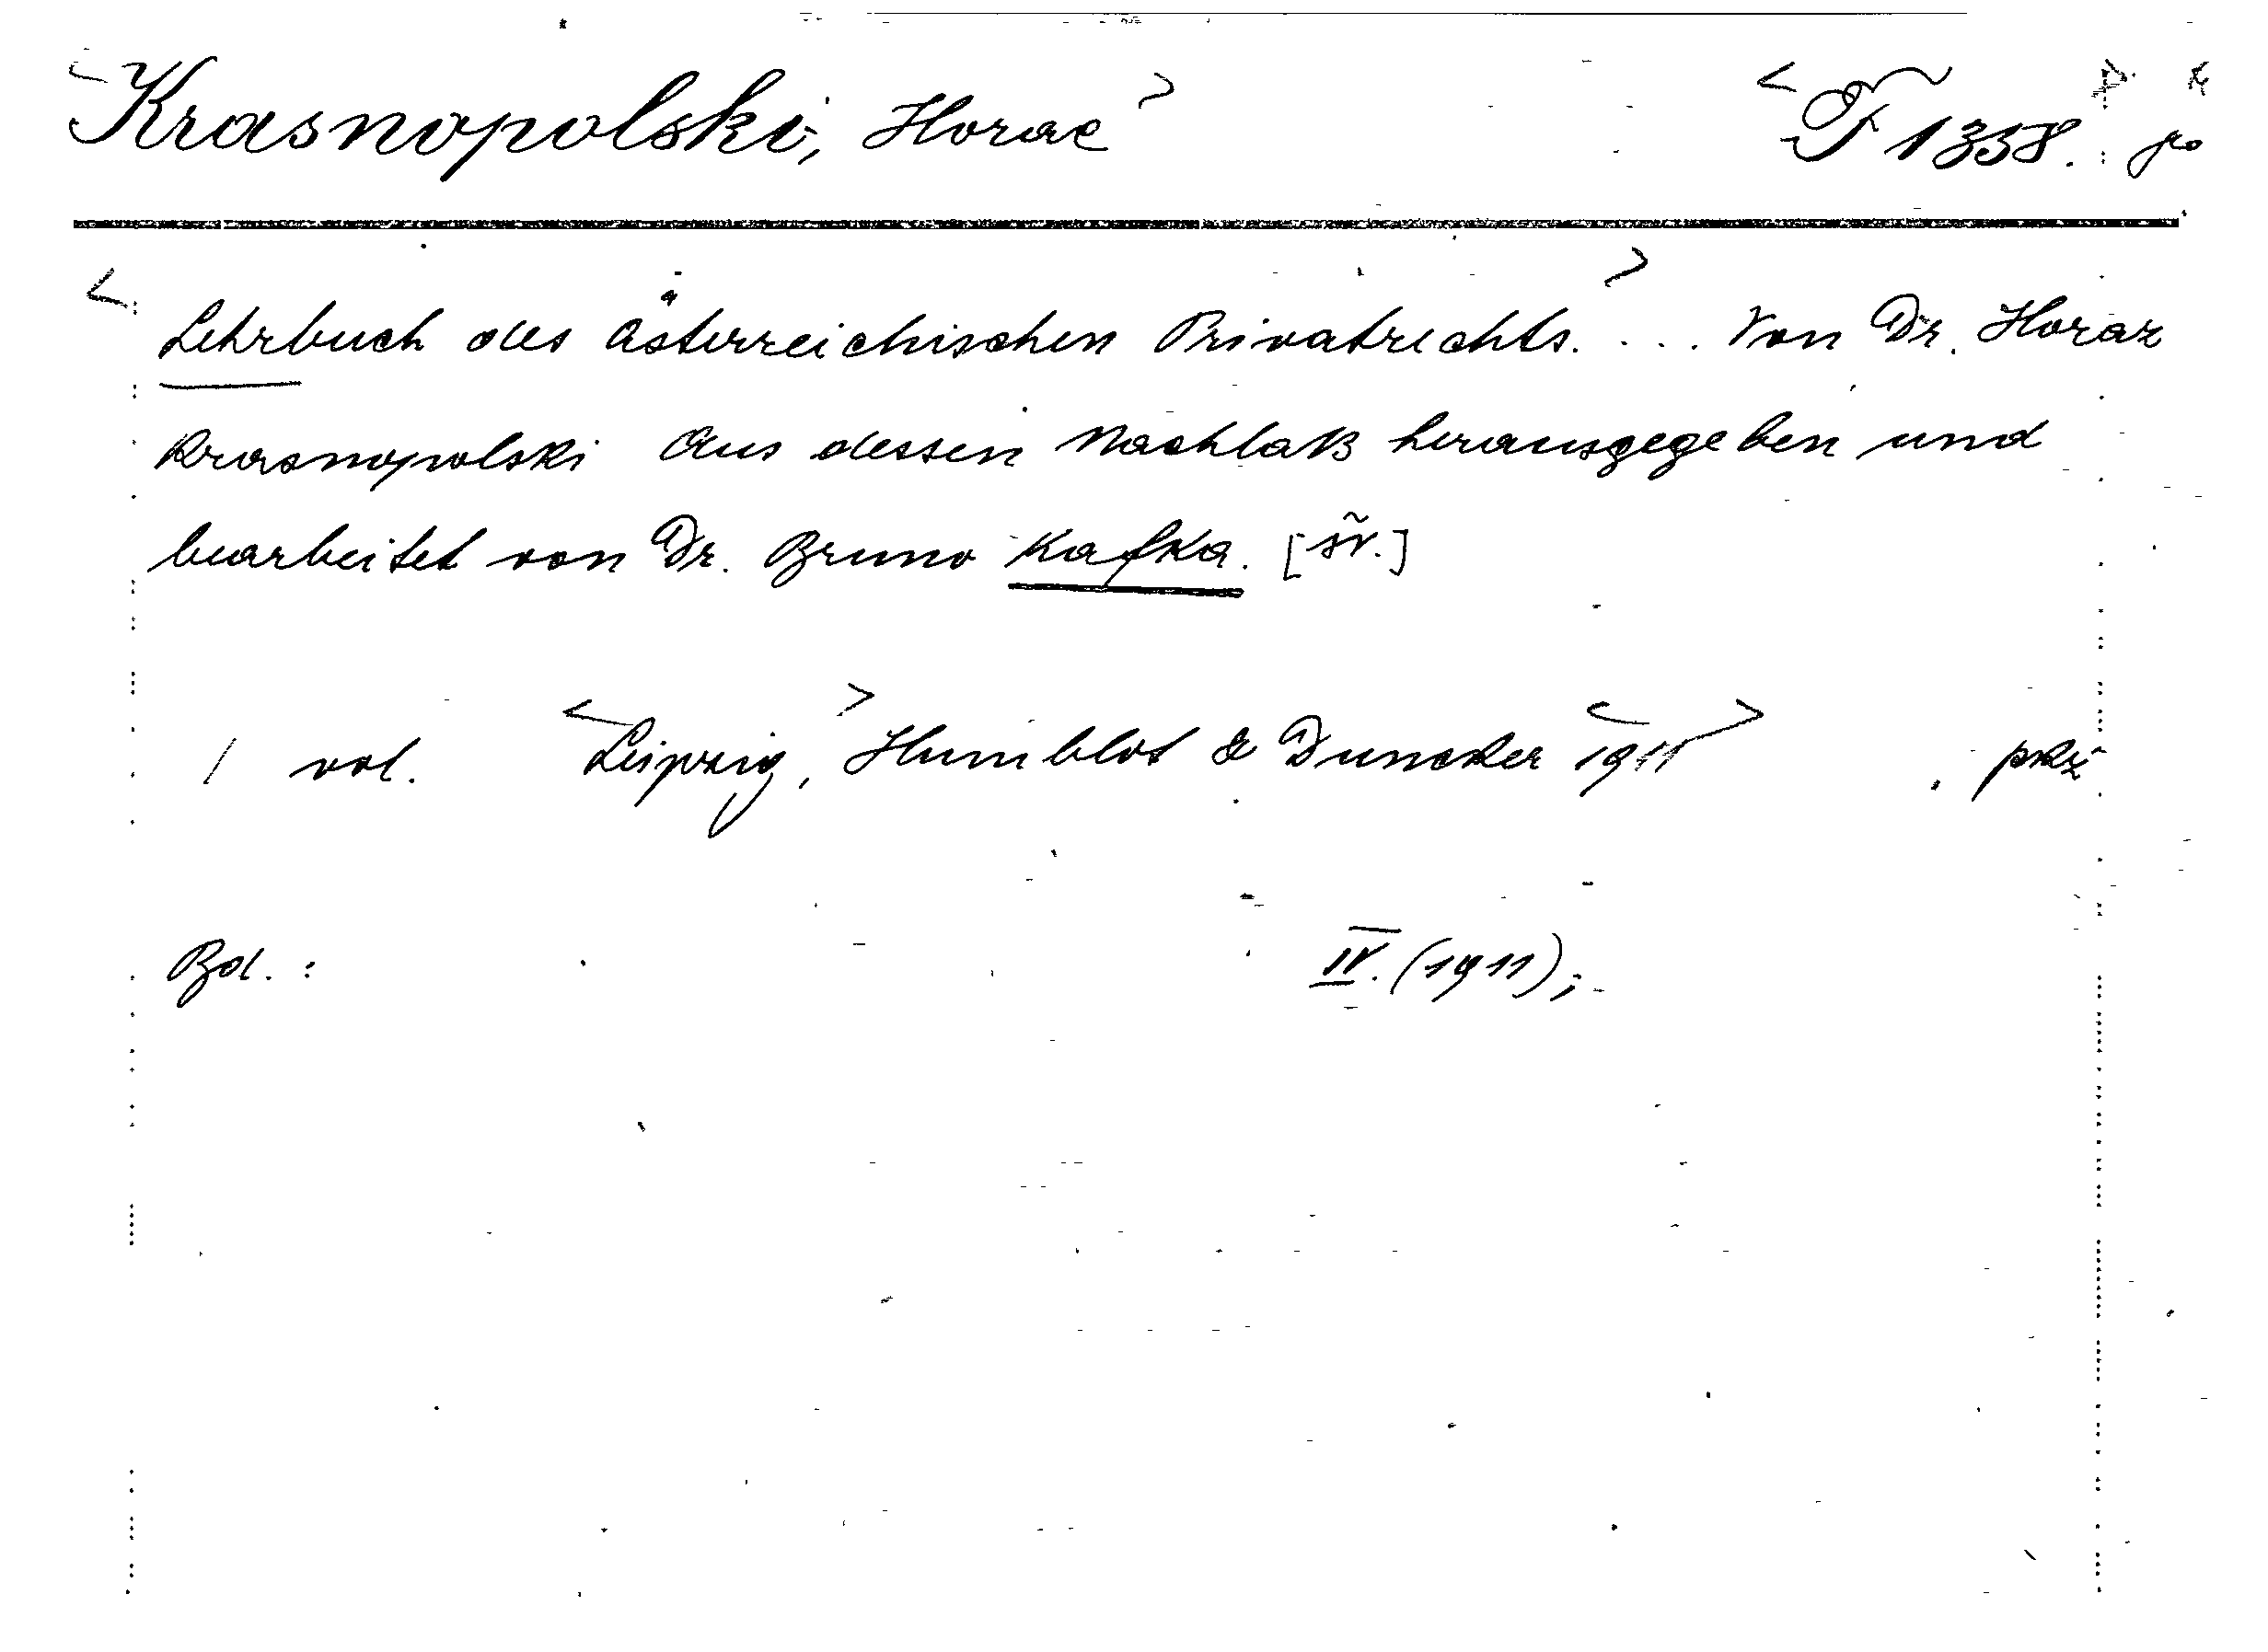 Krasnopolski, Horac F 1358.
Lehrbuch des österreichischen Privatrechts. ... Von Dr. Horaz
Krasnopolski Aus dessen Nachlaß herausgegeben und
bearbeitet von Dr. Bruno Kafka.
1 vol. Leipzig, Humblot & Duncker 1911
Bd. : IV. (1911);